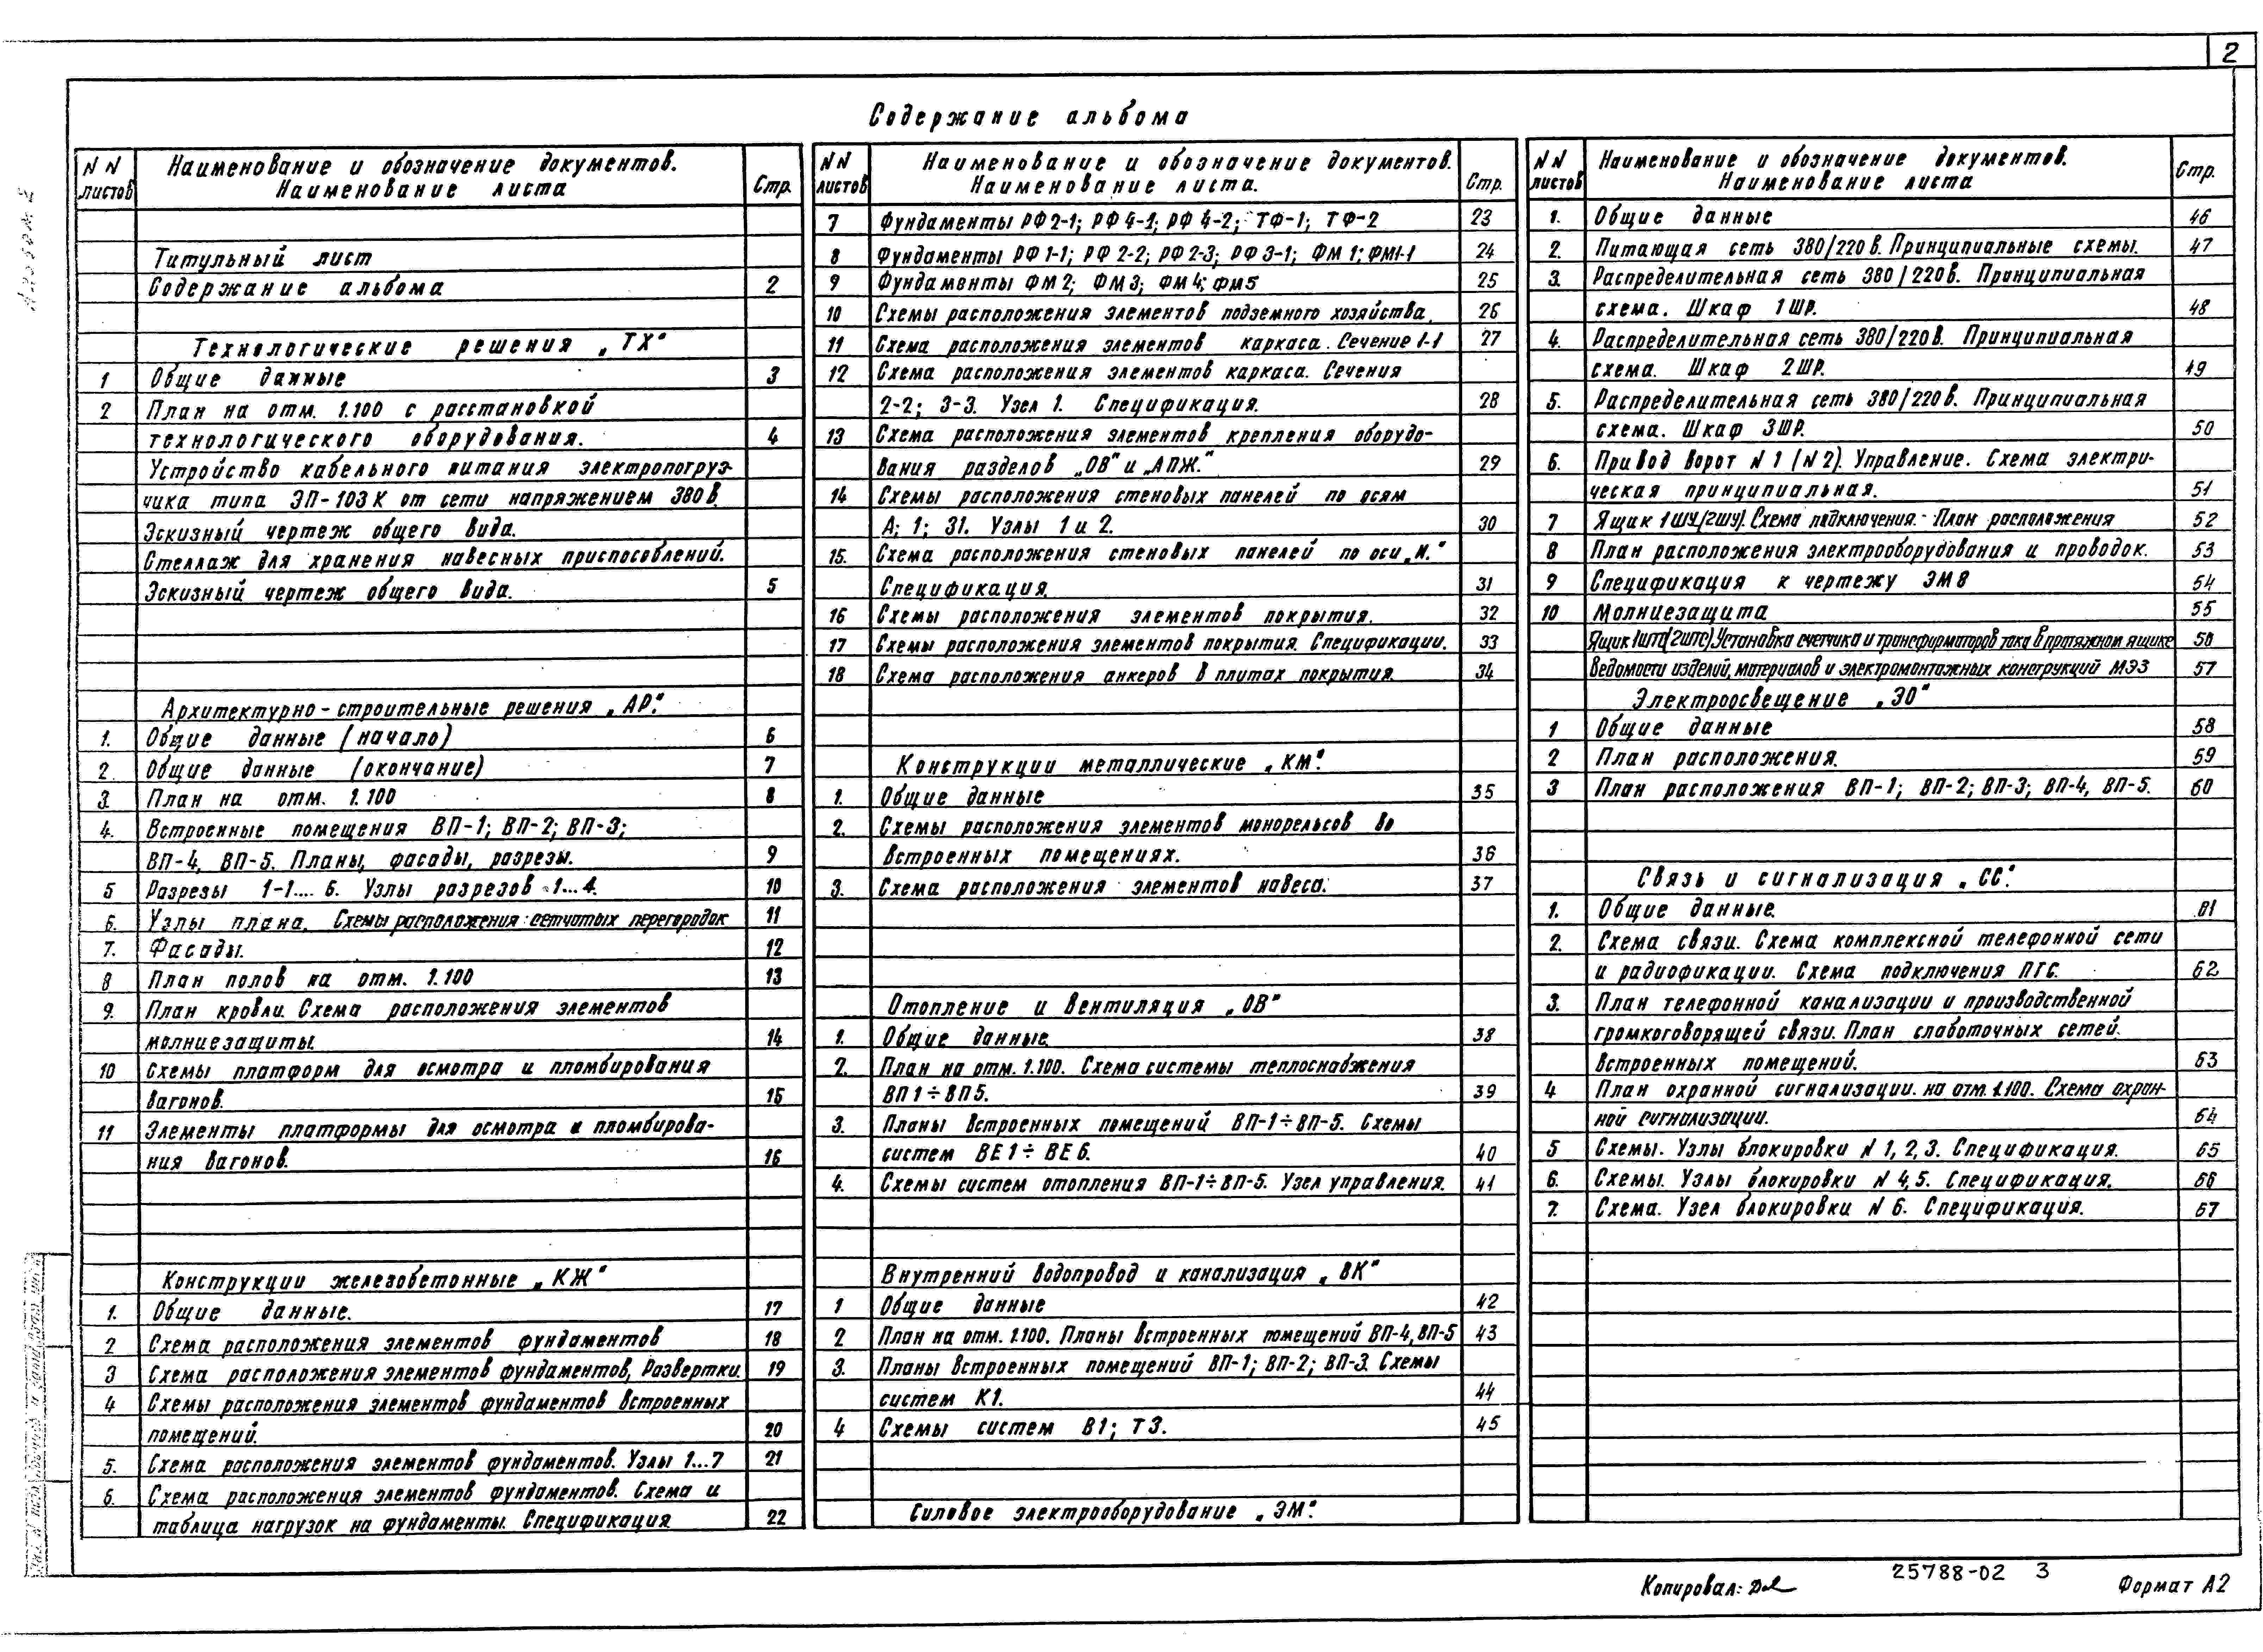 2
Содержание альбома
NN листов
Наименование и обозначение документов. Наименование листа
Стр.
Титульный лист
Содержание альбома 2
Технологические решения „ТХ"
1 Общие данные 3
2 План на отм. 1.100 с расстановкой
технологического оборудования. 4
Устройство кабельного питания электропогруз-
чика типа ЭП-103К от сети напряжением 380 в.
Эскизный чертеж общего вида.
Стеллаж для хранения навесных приспособлений.
Эскизный чертеж общего вида. 5
Архитектурно-строительные решения „АР".
1. Общие данные (начало) 6
2. Общие данные (окончание) 7
3. План на отм. 1.100 8
4. Встроенные помещения ВП-1; ВП-2; ВП-3;
ВП-4, ВП-5. Планы, фасады, разрезы. 9
5 Разрезы 1-1.... 6. Узлы разрезов 1...4. 10
6. Узлы плана. Схемы расположения сетчатых перегородок 11
7. Фасады. 12
8 План полов на отм. 1.100 13
9. План кровли. Схема расположения элементов
молниезащиты. 14
10 Схемы платформ для осмотра и пломбирования
вагонов. 15
11 Элементы платформы для осмотра и пломбирова-
ния вагонов. 16
Конструкции железобетонные „КЖ"
1. Общие данные. 17
2 Схема расположения элементов фундаментов 18
3 Схема расположения элементов фундаментов, Развертки. 19
4 Схемы расположения элементов фундаментов встроенных
помещений. 20
5. Схема расположения элементов фундаментов. Узлы 1...7 21
6. Схема расположения элементов фундаментов. Схема и
таблица нагрузок на фундаменты. Спецификация 22
NN листов
Наименование и обозначение документов. Наименование листа.
Стр.
7 Фундаменты РФ2-1; РФ4-1; РФ4-2; ТФ-1; ТФ-2 23
8 Фундаменты РФ1-1; РФ2-2; РФ2-3; РФ3-1; ФМ1; ФМ1-1 24
9 Фундаменты ФМ2; ФМ3; ФМ4; ФМ5 25
10 Схемы расположения элементов подземного хозяйства. 26
11 Схема расположения элементов каркаса. Сечение 1-1 27
12 Схема расположения элементов каркаса. Сечения
2-2; 3-3. Узел 1. Спецификация. 28
13 Схема расположения элементов крепления оборудо-
вания разделов „ОВ" и „АПЖ." 29
14 Схемы расположения стеновых панелей по осям
А; 1; 31. Узлы 1 и 2. 30
15. Схема расположения стеновых панелей по оси „И."
Спецификация. 31
16 Схемы расположения элементов покрытия. 32
17 Схемы расположения элементов покрытия. Спецификации. 33
18 Схема расположения анкеров в плитах покрытия. 34
Конструкции металлические „КМ".
1. Общие данные 35
2. Схемы расположения элементов монорельсов во
встроенных помещениях. 36
3. Схема расположения элементов навеса. 37
Отопление и вентиляция „ОВ"
1. Общие данные. 38
2. План на отм. 1.100. Схема системы теплоснабжения
ВП1÷ВП5. 39
3. Планы встроенных помещений ВП-1÷ВП-5. Схемы
систем ВЕ1÷ВЕ6. 40
4. Схемы систем отопления ВП-1÷ВП-5. Узел управления. 41
Внутренний водопровод и канализация „ВК"
1 Общие данные 42
2 План на отм. 1.100. Планы встроенных помещений ВП-4, ВП-5 43
3. Планы встроенных помещений ВП-1; ВП-2; ВП-3. Схемы
систем К1. 44
4 Схемы систем В1; Т3. 45
Силовое электрооборудование „ЭМ".
NN листов
Наименование и обозначение документов. Наименование листа
Стр.
1. Общие данные 46
2. Питающая сеть 380/220 в. Принципиальные схемы. 47
3. Распределительная сеть 380/220в. Принципиальная
схема. Шкаф 1ШР. 48
4. Распределительная сеть 380/220в. Принципиальная
схема. Шкаф 2ШР. 49
5. Распределительная сеть 380/220в. Принципиальная
схема. Шкаф 3ШР. 50
6. Привод ворот N1 (N2). Управление. Схема электри-
ческая принципиальная. 51
7 Ящик 1ШУ(2ШУ). Схема подключения. План расположения 52
8 План расположения электрооборудования и проводок. 53
9 Спецификация к чертежу ЭМ8 54
10 Молниезащита 55
Ящик Установка счетчика и трансформаторов тока в протяжном ящике 56
Ведомости изделий, материалов и электромонтажных конструкций МЭЗ 57
Электроосвещение „ЭО"
1 Общие данные 58
2 План расположения. 59
3 План расположения ВП-1; ВП-2; ВП-3; ВП-4, ВП-5. 60
Связь и сигнализация „СС".
1. Общие данные. 61
2. Схема связи. Схема комплексной телефонной сети
и радиофикации. Схема подключения ПГС. 62
3. План телефонной канализации и производственной
громкоговорящей связи. План слаботочных сетей.
встроенных помещений. 63
4 План охранной сигнализации. на отм. 1.100. Схема охран-
ной сигнализации. 64
5 Схемы. Узлы блокировки N 1, 2, 3. Спецификация. 65
6. Схемы. Узлы блокировки N 4, 5. Спецификация. 66
7. Схема. Узел блокировки N 6. Спецификация. 67
Копировал:
25788-02 3
Формат А2